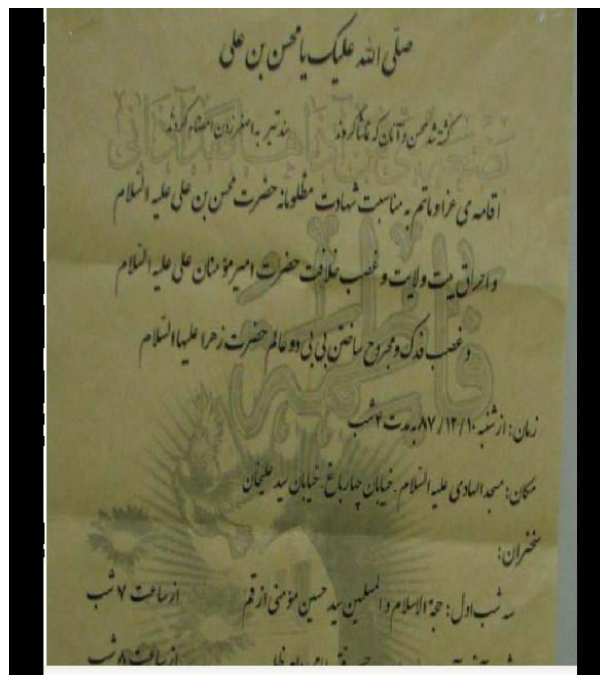 صلّی الله علیک یا محسن بن علی
کشته شد محسن و آنان که تماشا کردند سند تیر به اصغر زدن امضاء کردند
فاطمه
اقامه ی عزا و ماتم به مناسبت شهادت مظلومانه حضرت محسن بن علی علیه السلام
و احراق بیت ولایت و غصب خلافت حضرت امیر مؤمنان علی علیه السلام
و غصب فدک و مجروح ساختن بی بی دو عالم حضرت زهرا علیها السلام
زمان: از شنبه ۸۷/۱۲/۱۰ به مدت ۴ شب
مکان: مسجد الهادی علیه السلام - خیابان چهارباغ - خیابان سید علیخان
سخنران:
سه شب اول: حجة الاسلام و المسلمین سید حسین مؤمنی از قم از ساعت ۷ شب
از ساعت ۸ شب